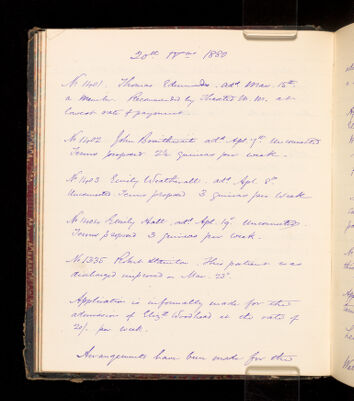 20th IVmo 1880
No 1401. Thomas Edmundson. adm Mar. 15th.
a member. Recommended by Thirsted M. M. at
lowest rate of payment.
No 1402 John Braithwaite adm Apl. 7th Unconnected
Terms proposed 2½ guineas per week.
No 1403 Emily Weatherall. adm Apl. 8th.
Unconnected Terms proposed 3 guineas per week
No 1404 Emily Hall. adm Apl. 19. Unconnected.
Terms proposed 3 guineas per week.
No 1335 Robert This patient was
discharged improved in Mar. 23rd.
Application is informally made for the
admission of Elizth Woodhead at the rate of
20/- per week.
Arrangements have been made for the